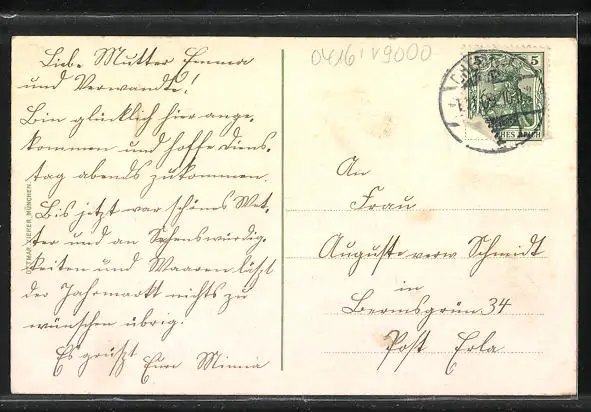 Liebe Mutter Emma
und Verwandte!
Bin glücklich hier ange-
kommen und hoffe Diens-
tag abends zukommen.
Bis jetzt war schönes Wet-
ter und an Sehenswürdig-
keiten und Waaren läßt
der Jahrmarkt nichts zu
wünschen übrig.
Es grüßt Eure Minna
OTTMAR ZIEHER, MÜNCHEN
0416 V9000
5
DEUTSCHES REICH
An
Frau
Auguste verw Schmidt
in
Bermsgrün 34
Post Erla